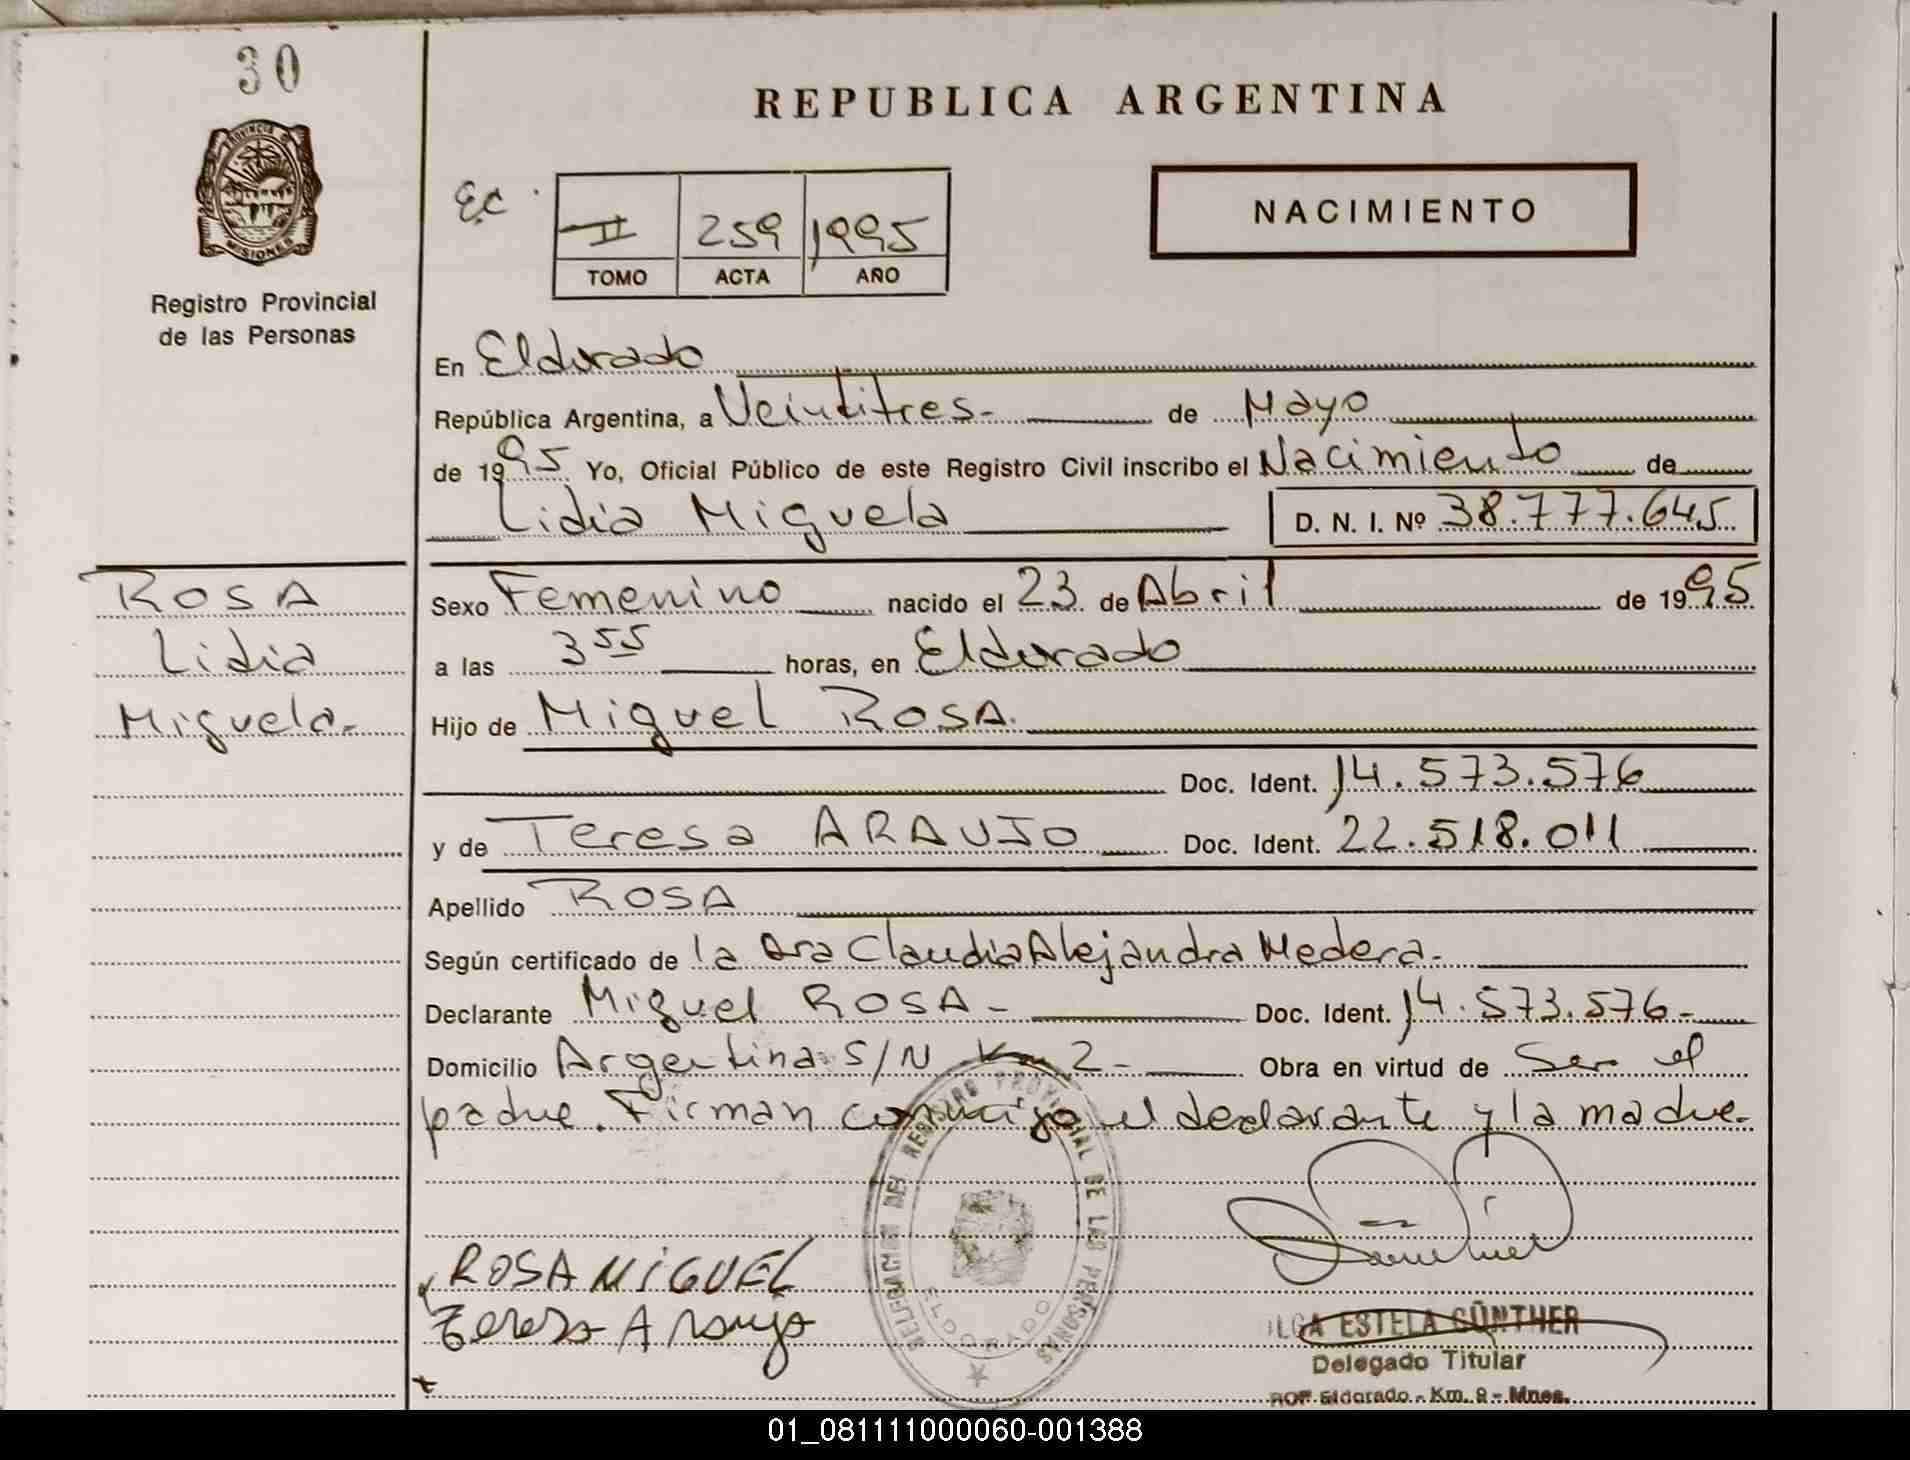 30
PROVINCIA DE
MISIONES
Registro Provincial
de las Personas
REPUBLICA ARGENTINA
E.C.
II 259 1995
TOMO ACTA AÑO
NACIMIENTO
En Eldorado
República Argentina, a Veintitres.- de Mayo
de 1995 Yo, Oficial Público de este Registro Civil inscribo el Nacimiento de
Lidia Miguela D. N. I. Nº 38.777.645
ROSA
Lidia
Miguela.-
Sexo Femenino nacido el 23 de Abril de 1995
a las 3 55 horas, en Eldorado
Hijo de Miguel ROSA.
Doc. Ident. 14.573.576
y de Teresa ARAUJO Doc. Ident. 22.518.011
Apellido ROSA
Según certificado de la Dra Claudia Alejandra Medera.-
Declarante Miguel ROSA- Doc. Ident. 14.573.576-
Domicilio Argentina S/N Km 2- Obra en virtud de Ser el
padre. Firman conmigo el declarante y la madre.-
DELEGACION DEL REGISTRO PROVINCIAL DE LAS PERSONAS
ELDORADO
ROSA MIGUEL
Teresa Araujo
OLGA ESTELA GÜNTHER
Delegado Titular
Eldorado - Km. 9 - Mnes.
01_081111000060-001388